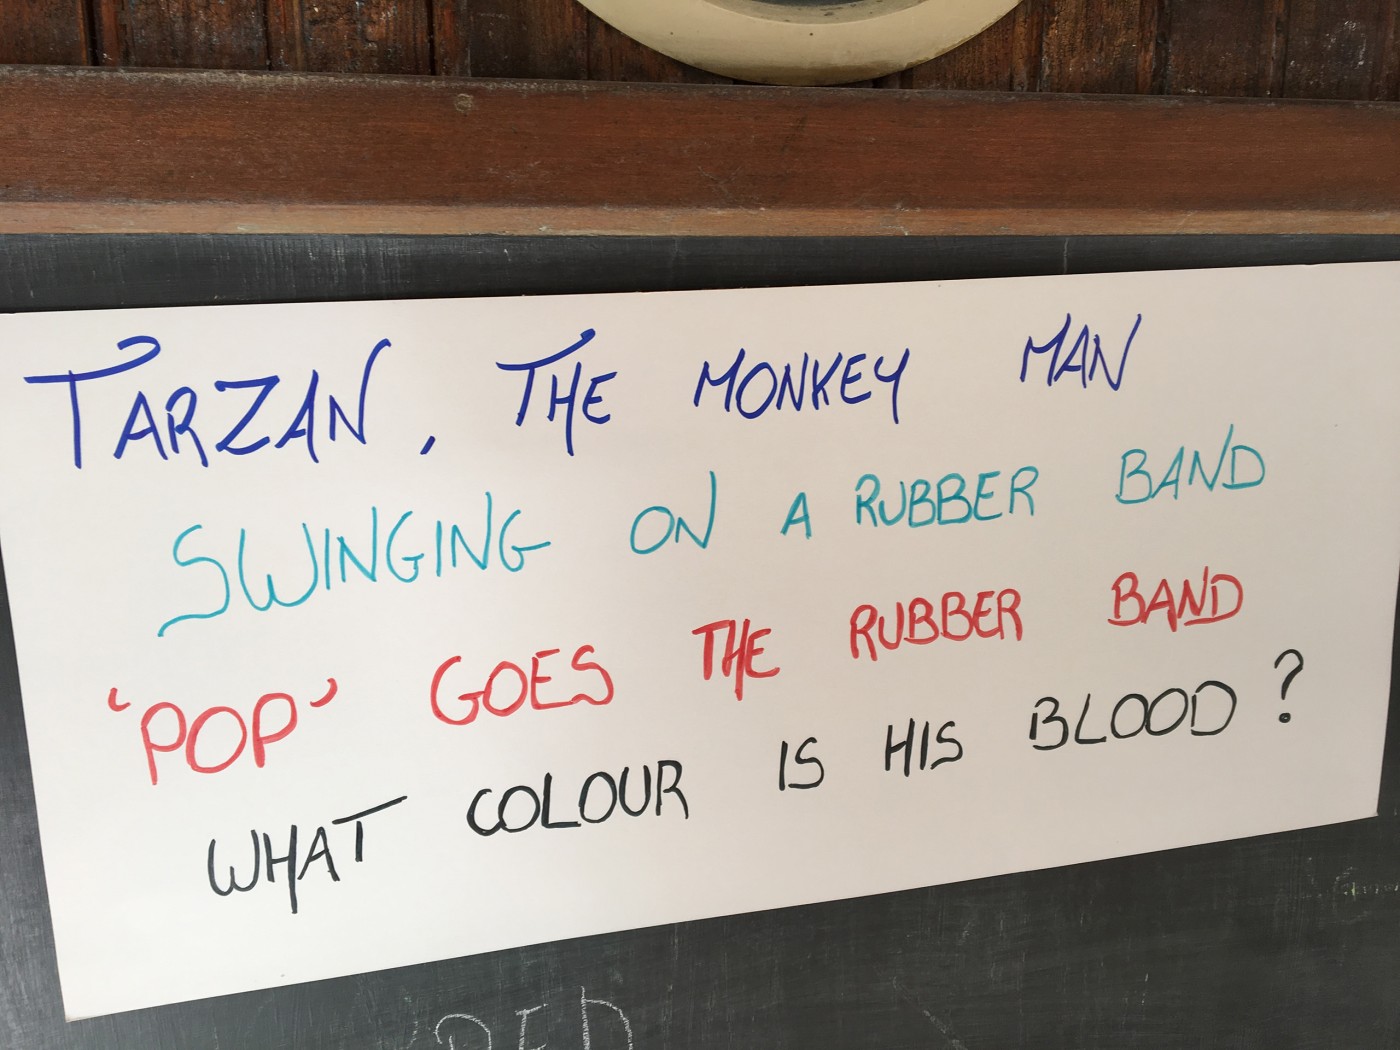 TARZAN, THE MONKEY MAN
SWINGING ON A RUBBER BAND
'POP' GOES THE RUBBER BAND
WHAT COLOUR IS HIS BLOOD?
RED